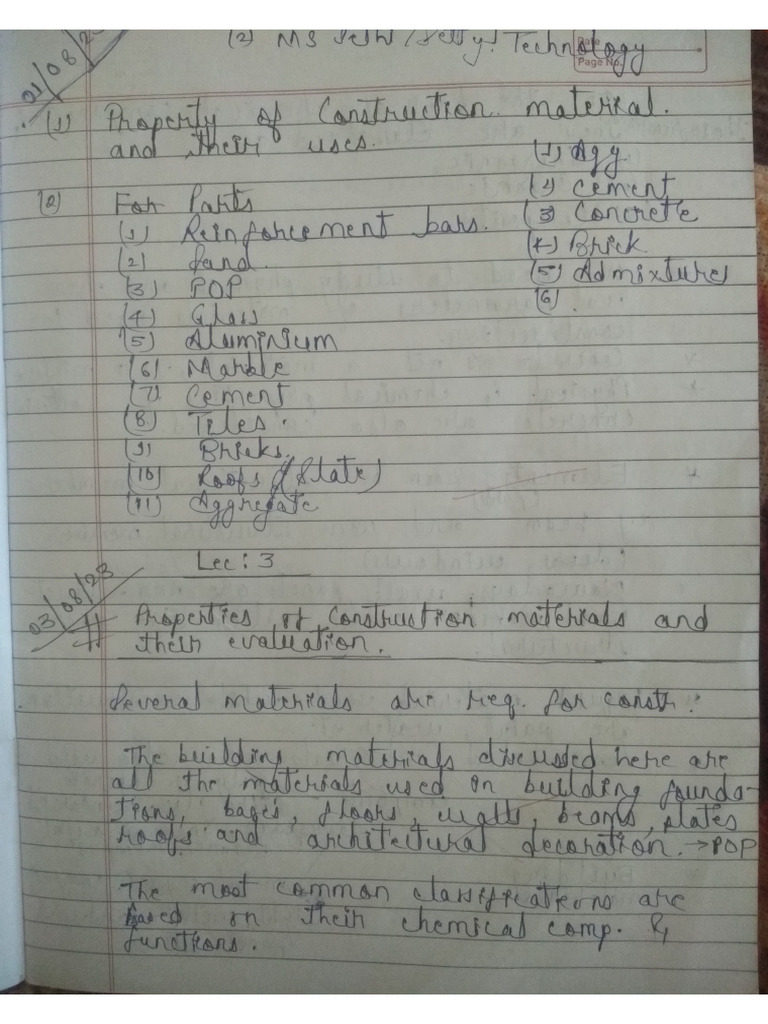 (2) MS Technology
Date
Page No.
01/08/2
(1) Property of Construction material.
and their uses.
(1) Agg.
(2) For Parts
(1) Cement
(1) Reinforcement bars.
(3) Concrete
(2) Sand.
(4) Brick
(3) POP
(5) Admixtures
(4) Glass
(6) .
(5) Aluminium
(6) Marble
(7) Cement
(8) Tiles.
(9) Bricks.
(10) Roofs (Slate)
(11) Aggregate
Lec : 3
03/08/23
# Properties of Construction materials and
their evaluation.
Several materials are req. for constr :
The building materials discussed here are
all the materials used in building founda-
tions, bases, floors, walls, beams, plates
roofs and architectural decoration. → POP
The most common classifications are
based on their chemical comp. &
functions.